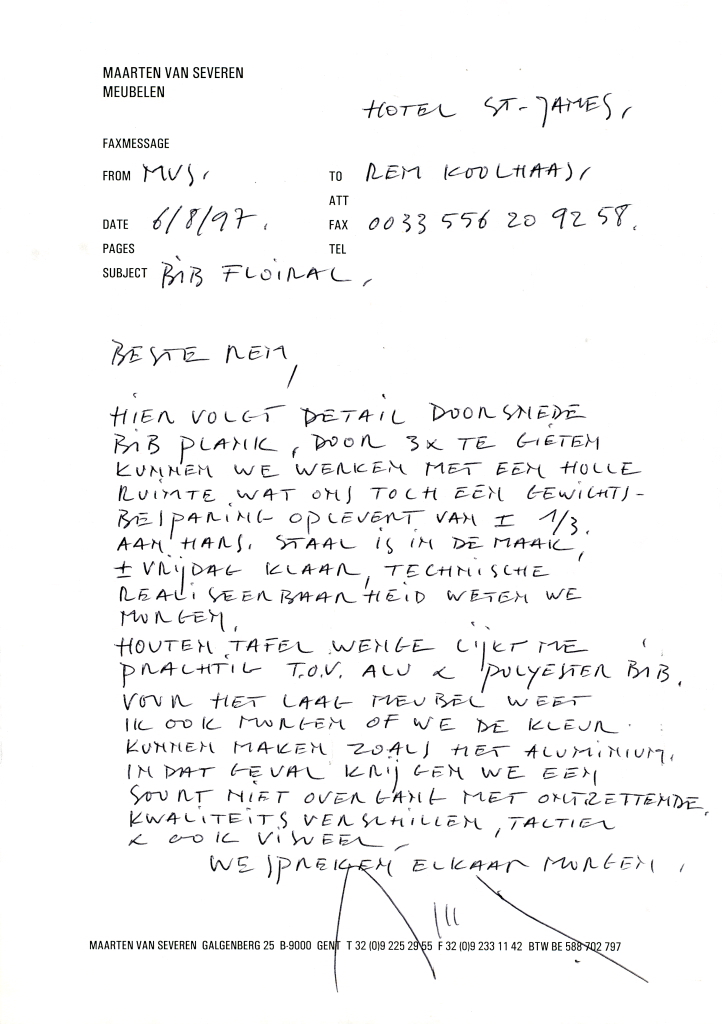 MAARTEN VAN SEVEREN
MEUBELEN
HOTEL ST-JAMES,
FAXMESSAGE
FROM MVS, TO REM KOOLHAAS,
ATT
DATE 6/8/97. FAX 0033 556 20 92 58.
PAGES TEL
SUBJECT BIB FLOIRAC,
BESTE REM,
HIER VOLGT DETAIL DOORSNEDE
BIB PLANK, DOOR 3x TE GIETEN
KUNNEN WE WERKEN MET EEN HOLLE
RUIMTE WAT ONS TOCH EEN GEWICHTS-
BESPARING OPLEVERT VAN ± 1/3.
AAN HANS. STAAL IS IN DE MAAK,
± VRIJDAG KLAAR, TECHNISCHE
REALISEERBAARHEID WETEN WE
MORGEN.
HOUTEN TAFEL WENGE LIJKT ME
PRACHTIG T.O.V. ALU & POLYESTER BIB.
VOOR HET LAAG MEUBEL WEET
IK OOK MORGEN OF WE DE KLEUR
KUNNEN MAKEN ZOALS HET ALUMINIUM.
IN DAT GEVAL KRIJGEN WE EEN
SOORT NIET OVERGANG MET ONTZETTENDE
KWALITEITSVERSCHILLEN, TACTIEL
& OOK VISUEEL.
WE SPREKEN ELKAAR MORGEN,
MAARTEN VAN SEVEREN GALGENBERG 25 B-9000 GENT T 32 (0)9 225 29 55 F 32 (0)9 233 11 42 BTW BE 588 702 797